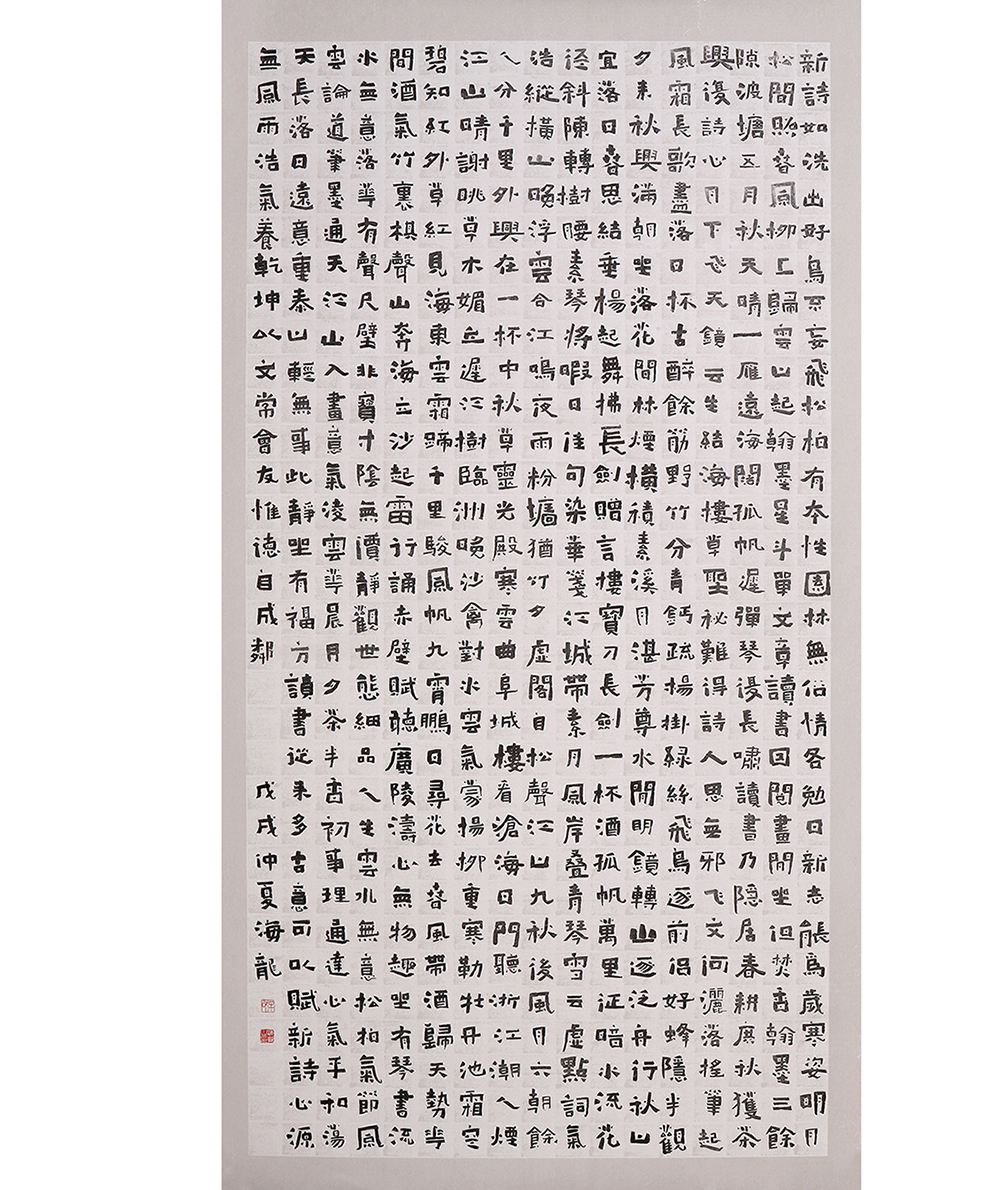 新詩如洗出好鳥不妄飛松柏有本性園林無俗情各勉日新志能爲歲寒姿明月
松間照春風柳上歸雲山起翰墨星斗單文章讀書回閱畫閒坐但焚香翰墨三餘
隙波塘五月秋天晴一雁遠海闊孤帆遲彈琴後長嘯讀書乃隱居春耕度秋獲茶
興後詩心月下飞天鏡云生結海樓草聖秘難得詩人思無邪飞文何灑落搖筆起
風霜長歌盡落日杯古醉餘筋野竹分青鈣疏揚掛緑絲飛鳥逐前侶好蜂隱半觀
夕来秋興滿朝坐落花間林煙橫積素溪月湛芳尊水閒明鏡轉山逐泛舟行秋山
宜落日春思結垂楊起舞拂長劍贈言摟寶刀長劍一杯酒孤帆萬里征暗水流花
径斜陳轉樹腰素琴将暇日佳句染華箋江城帶素月風岸叠青琴雪云虛點詞氣
浩縱橫山晚浮雲合江鳴夜雨粉墻猶竹夕虛閣自松聲江山九秋後風月六朝餘
人分千里外興在一杯中秋草靈光殿寒雲曲阜城樓看滄海日門聽浙江潮人煙
江山晴謝眺草木媚丘遲江樹臨洲晚沙禽對水雲氣蒙揚柳重寒勒牡丹池霜空
碧知紅外草紅見海東雲霜蹄千里駿風帆九霄鵬日尋花去春風帶酒歸天勢華
間酒氣竹裏棋聲山奔海立沙起雷行誦赤壁賦聽廣陵濤心無物趣坐有琴書流
水無意落華有聲尺璧非寶寸陰無價靜觀世態細品人生雲水無意松柏氣節風
雲論道筆墨通天江山入畫意氣凌雲華晨月夕茶半香初事理通達心氣平和蕩
天長落日遠意重泰山輕無事此靜坐有福方讀書從来多古意可以賦新詩心源
無風雨浩氣養乾坤以文常會友惟德自成鄰
戊戌仲夏海龍